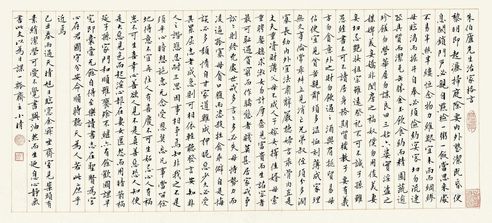 朱伯廬先生治家格言
黎明即起灑掃庭除要內外整潔既昏便
息關鎖門戶必親自檢點一粥一飯當思來處
不易半絲半縷恆念物力維艱宜未雨而綢繆
毋臨渴而掘井自奉必須儉約宴客切勿流連
器具質而潔瓦缶勝金玉飲食約而精園蔬逾
珍饈勿營華屋勿謀良田三姑六婆實淫盜之
媒婢美妾嬌非閨房之福奴僕勿用俊美妻
妾切忌艷妝祖宗雖遠祭祀不可不誠子孫雖
愚經書不可不讀居身務期質樸教子要有義
方勿貪意外之財勿飲過量之酒與肩挑貿易
佔便宜見貧苦親鄰須多溫恤刻薄成家理
無久享倫常乖舛立見消亡兄弟叔侄須多分潤
寡長幼內外宜法肅辭嚴聽婦言乖骨肉豈是
丈夫重資財薄父母不成人子嫁女擇佳婿毋索
重聘娶媳求淑女毋計厚奩見富貴而生諂容者
最可恥遇貧窮而作驕態者賤莫甚居家戒爭
訟訟則終凶處世戒多言言多必失毋恃勢力而
凌逼孤寡勿貪口腹而恣殺生禽乖僻自是悔
誤必多頹惰自甘家道難成狎昵惡少久必受
其累屈志老成急則可相依輕聽發言安知非
人之譖愬當忍耐三思因事相爭安知非我之不是
須平心暗想施惠無念受恩莫忘凡事當留餘
地得意不宜再往人有喜慶不可生妒忌心人有禍
患不可生喜幸心善欲人見不是真善惡恐人知便
是大惡見色而起淫心報在妻女匿怨而用暗箭禍
延子孫家門和順雖饔飧不繼亦有餘歡國課早
完即囊橐無餘自得至樂讀書志在聖賢為官
心存君國守分安命順時聽天為人若此庶乎
近焉